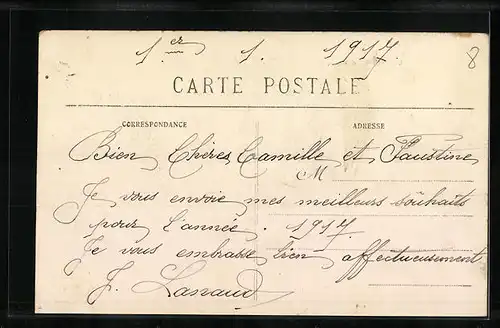 1er 1. 1917.
8
CARTE POSTALE
CORRESPONDANCE ADRESSE
Bien Chères Camille et Faustine
M
Je vous envoie mes meilleurs souhaits
pour l'année. 1917.
Je vous embrasse bien affectueusement
J. Lanaud